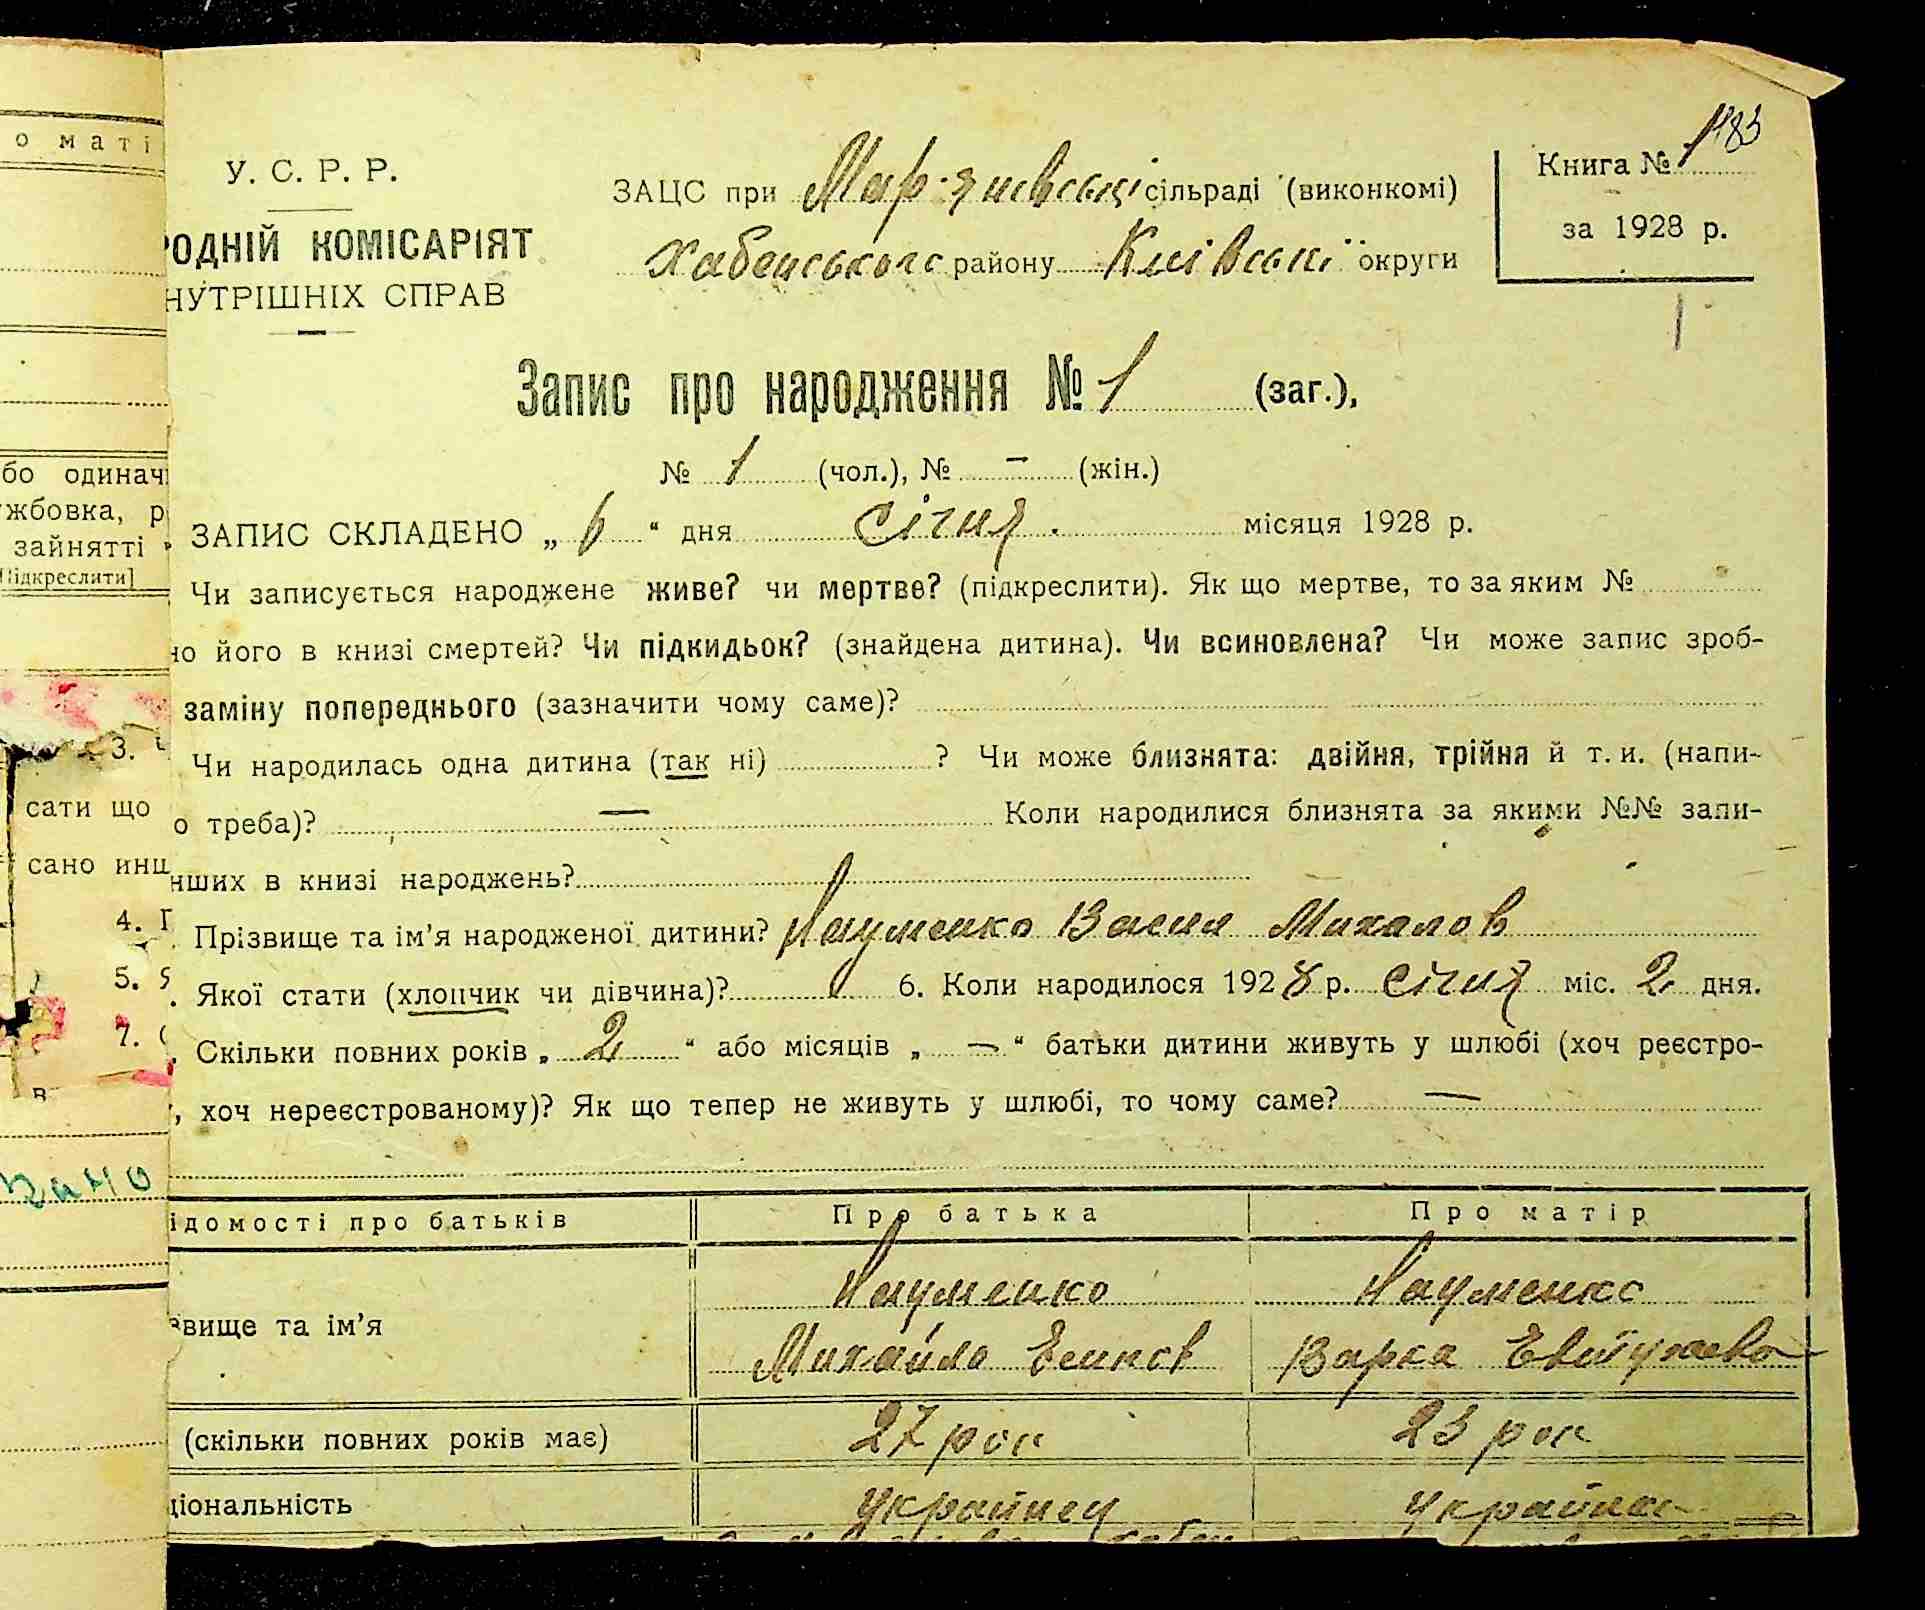 о маті
бо одинач
жбовка, р
зайнятті
підкреслити]
3. Ч
сати що
сано инш
4. П
5. Я
7. С
в
зано
183
У. С. Р. Р.
РОДНІЙ КОМІСАРІЯТ
НУТРІШНІХ СПРАВ
ЗАЦС при Мар'янівські сільраді (виконкомі)
Хабенського району Київські округи
Книга № 1
за 1928 р.
1
Запис про народження № 1 (заг.),
№ 1 (чол.), № – (жін.)
ЗАПИС СКЛАДЕНО „ 6 “ дня січня місяця 1928 р.
Чи записується народжене живе? чи мертве? (підкреслити). Як що мертве, то за яким №
но його в книзі смертей? Чи підкидьок? (знайдена дитина). Чи всиновлена? Чи може запис зроб-
заміну попереднього (зазначити чому саме)?
Чи народилась одна дитина (так ні) ? Чи може близнята: двійня, трійня й т. и. (напи-
о треба)? — Коли народилися близнята за якими №№ запи-
нших в книзі народжень?
Прізвище та ім’я народженої дитини? Науменко Васил Михалов
Якої стати (хлопчик чи дівчина)? 6. Коли народилося 1928 р. січня міс. 2 дня.
Скільки повних років „ 2 “ або місяців „ — “ батьки дитини живуть у шлюбі (хоч реєстро-
, хоч нереєстрованому)? Як що тепер не живуть у шлюбі, то чому саме? —
ідомості про батьків Про батька Про матір
звище та ім’я
Науменко Науменко
Михайло Варка
(скільки повних років має) 27 рок 23 рок
ціональність украйнец украйнка